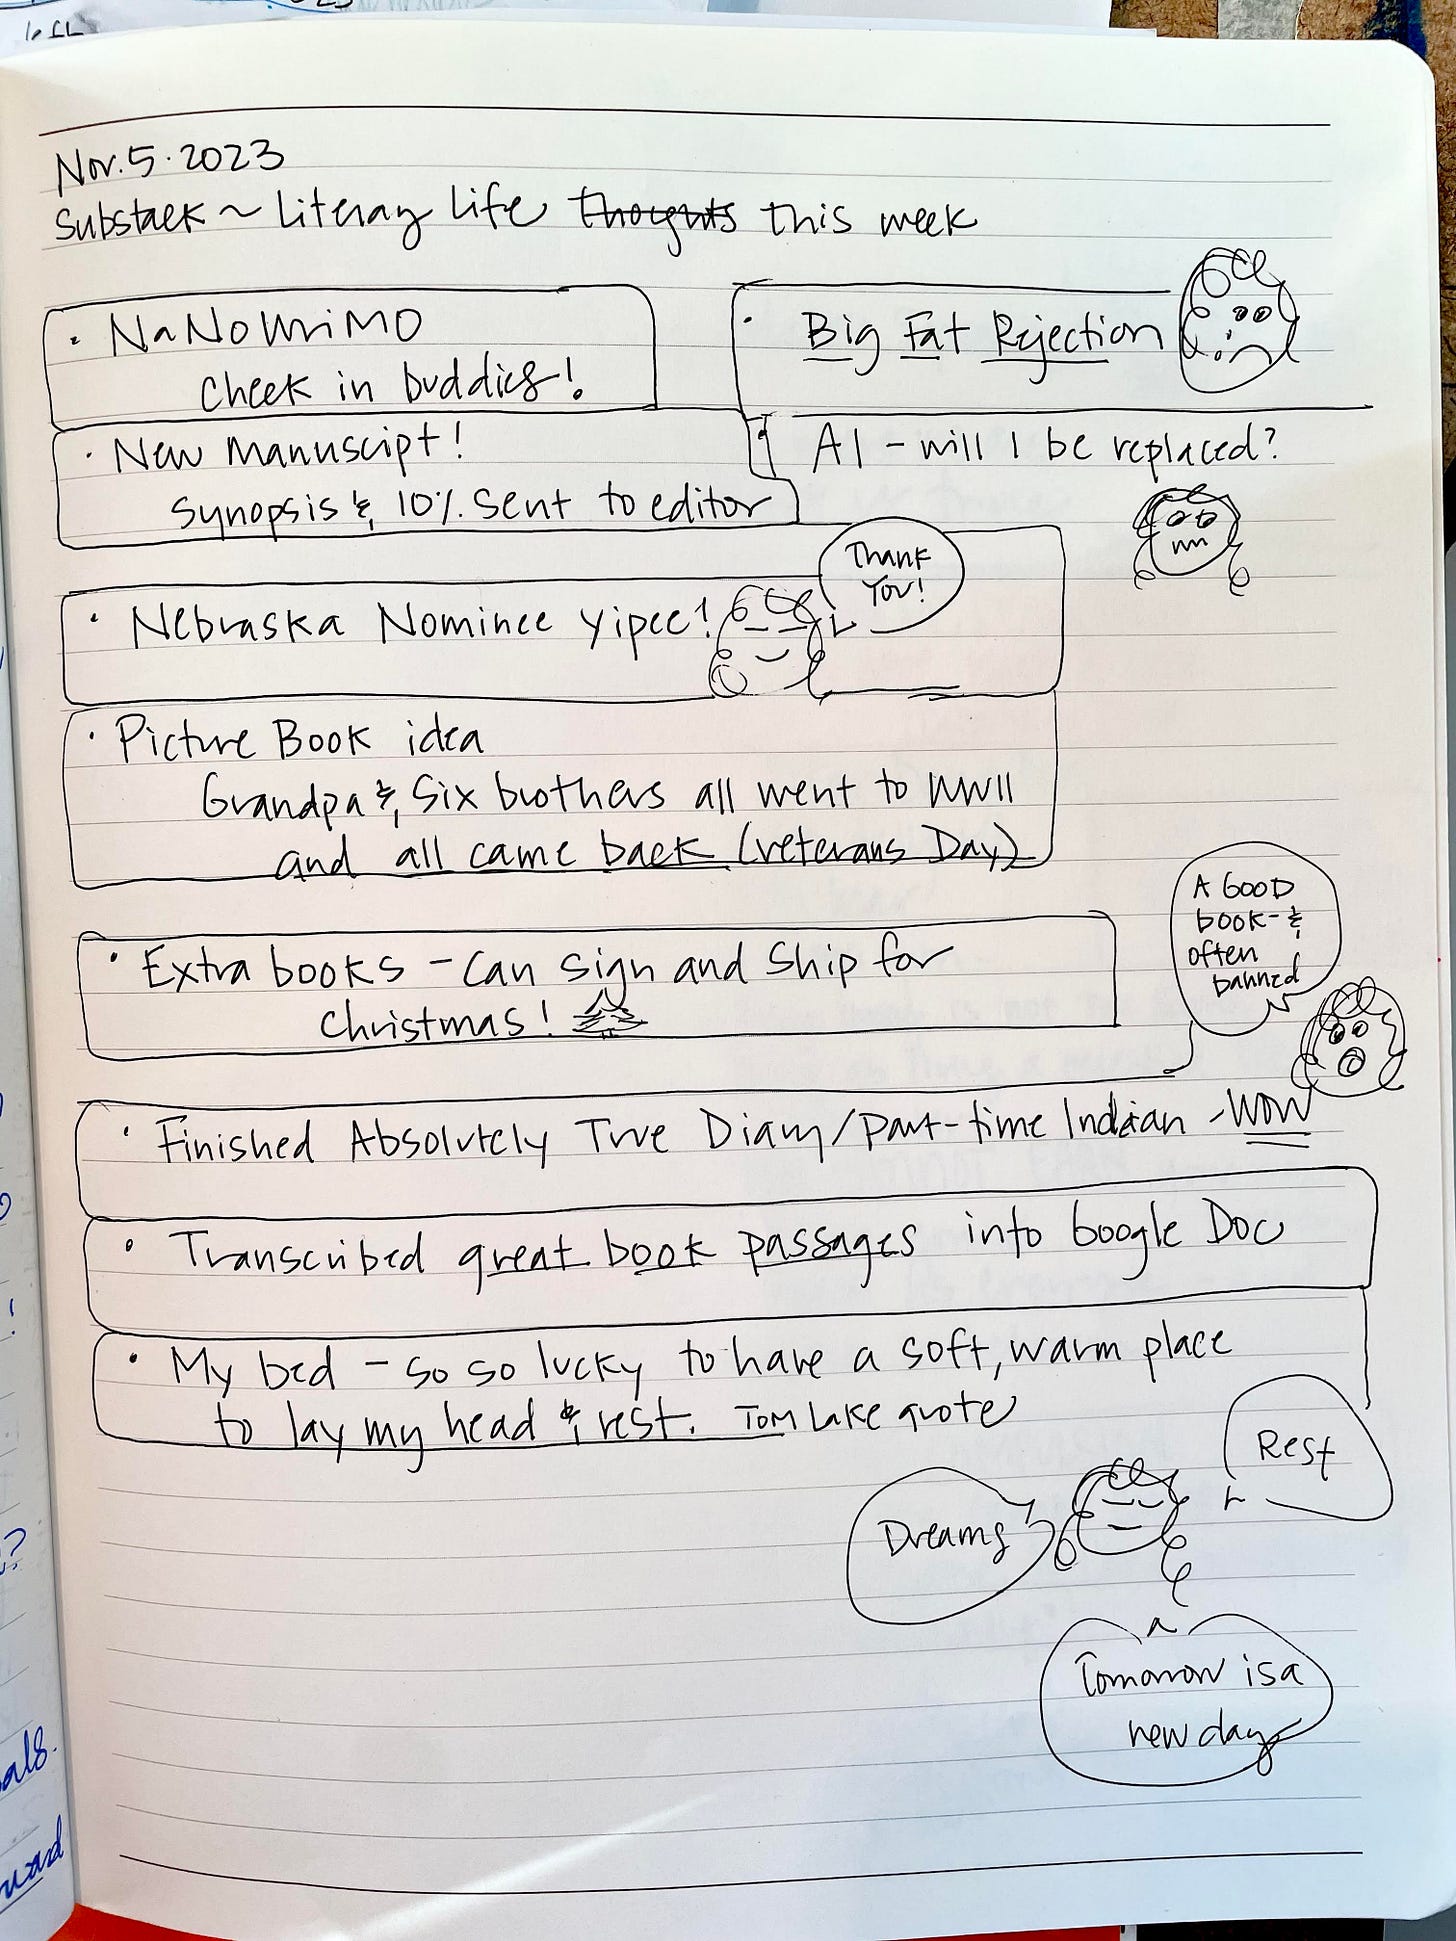 left
Nov. 5. 2023
Substack ~ Literary Life thoughts this week
• NaNoWriMO
Check in buddies!
• Big Fat Rejection
• New Manuscipt!
Synopsis & 10% sent to editor
• AI - will I be replaced?
Thank
You!
• Nebraska Nominee Yipee!
• Picture Book idea
Grandpa & Six brothers all went to WWII
and all came back (Veterans Day)
A GOOD
book- &
often
banned
• Extra books - Can sign and ship for
Christmas!
• Finished Absolutely True Diary/Part-time Indian - WOW
• Transcribed great book passages into Google Doc
• My bed - so so lucky to have a soft, warm place
to lay my head & rest. Tom Lake quote
Rest
Dreams
Tomorrow is a
new day